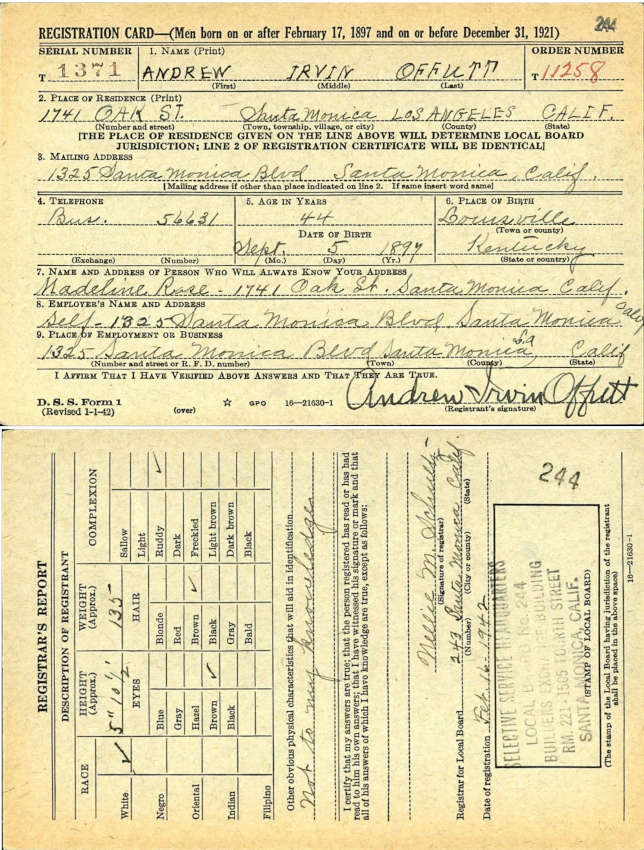 REGISTRATION CARD—(Men born on or after February 17, 1897 and on or before December 31, 1921)
244
SERIAL NUMBER
1. NAME (Print)
ORDER NUMBER
T 1371
ANDREW IRVIN OFFUTT
T 11258
(First) (Middle) (Last)
2. PLACE OF RESIDENCE (Print)
1741 OAK ST. Santa Monica LOS ANGELES CALIF.
(Number and street) (Town, township, village, or city) (County) (State)
[THE PLACE OF RESIDENCE GIVEN ON THE LINE ABOVE WILL DETERMINE LOCAL BOARD
JURISDICTION; LINE 2 OF REGISTRATION CERTIFICATE WILL BE IDENTICAL]
3. MAILING ADDRESS
1325 Santa Monica Blvd Santa Monica, Calif.
[Mailing address if other than place indicated on line 2. If same insert word same]
4. TELEPHONE
5. AGE IN YEARS
6. PLACE OF BIRTH
Bus. 56631
44
Louisville
(Town or county)
DATE OF BIRTH
Sept. 5 1897
Kentucky
(Exchange) (Number)
(Mo.) (Day) (Yr.)
(State or country)
7. NAME AND ADDRESS OF PERSON WHO WILL ALWAYS KNOW YOUR ADDRESS
Madeline Rose - 1741 Oak St. Santa Monica Calif.
8. EMPLOYER'S NAME AND ADDRESS
Self - 1325 Santa Monica Blvd Santa Monica Calif
9. PLACE OF EMPLOYMENT OR BUSINESS
1325 Santa Monica Blvd Santa Monica, LA Calif
(Number and street or R. F. D. number) (Town) (County) (State)
I AFFIRM THAT I HAVE VERIFIED ABOVE ANSWERS AND THAT THEY ARE TRUE.
Andrew Irvin Offutt
D. S. S. Form 1
(Revised 1-1-42)
(over)
GPO 16—21630-1
(Registrant's signature)
REGISTRAR'S REPORT
DESCRIPTION OF REGISTRANT
RACE
HEIGHT
(Approx.)
WEIGHT
(Approx.)
COMPLEXION
White ✓
5" 10 1/2'
135
Sallow
EYES
HAIR
Light
Negro
Blue
Blonde
Ruddy ✓
Gray
Red
Dark
Oriental
Hazel
Brown ✓
Freckled
Brown ✓
Black
Light brown
Indian
Black
Gray
Dark brown
Bald
Black
Filipino
Other obvious physical characteristics that will aid in identification
Not to my knowledge
I certify that my answers are true; that the person registered has read or has had
read to him his own answers; that I have witnessed his signature or mark and that
all of his answers of which I have knowledge are true, except as follows:
Nellie M.
(Signature of registrar)
Registrar for Local Board 243 Santa Monica Calif.
(Number) (City or county) (State)
Date of registration Feb. 16-1942
244
SELECTIVE SERVICE HEADQUARTERS
LOCAL BOARD No. 244
BUILDERS EXCHANGE BUILDING
RM. 221 - 1505 FOURTH STREET
SANTA MONICA, CALIF.
(STAMP OF LOCAL BOARD)
(The stamp of the Local Board having jurisdiction of the registrant
shall be placed in the above space)
16—21630-1